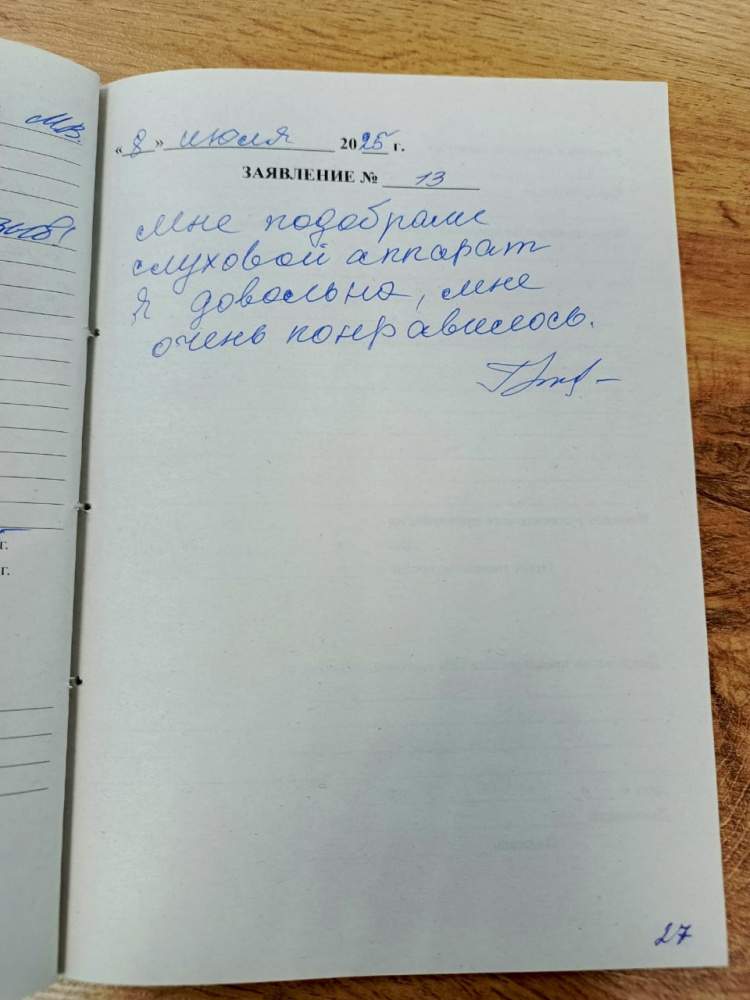 М.В.
«8» июля 2025 г.
ЗАЯВЛЕНИЕ № 13
Мне подобрали
слуховой аппарат
Я довольна, мне
очень понравилось.
г.
г.
27